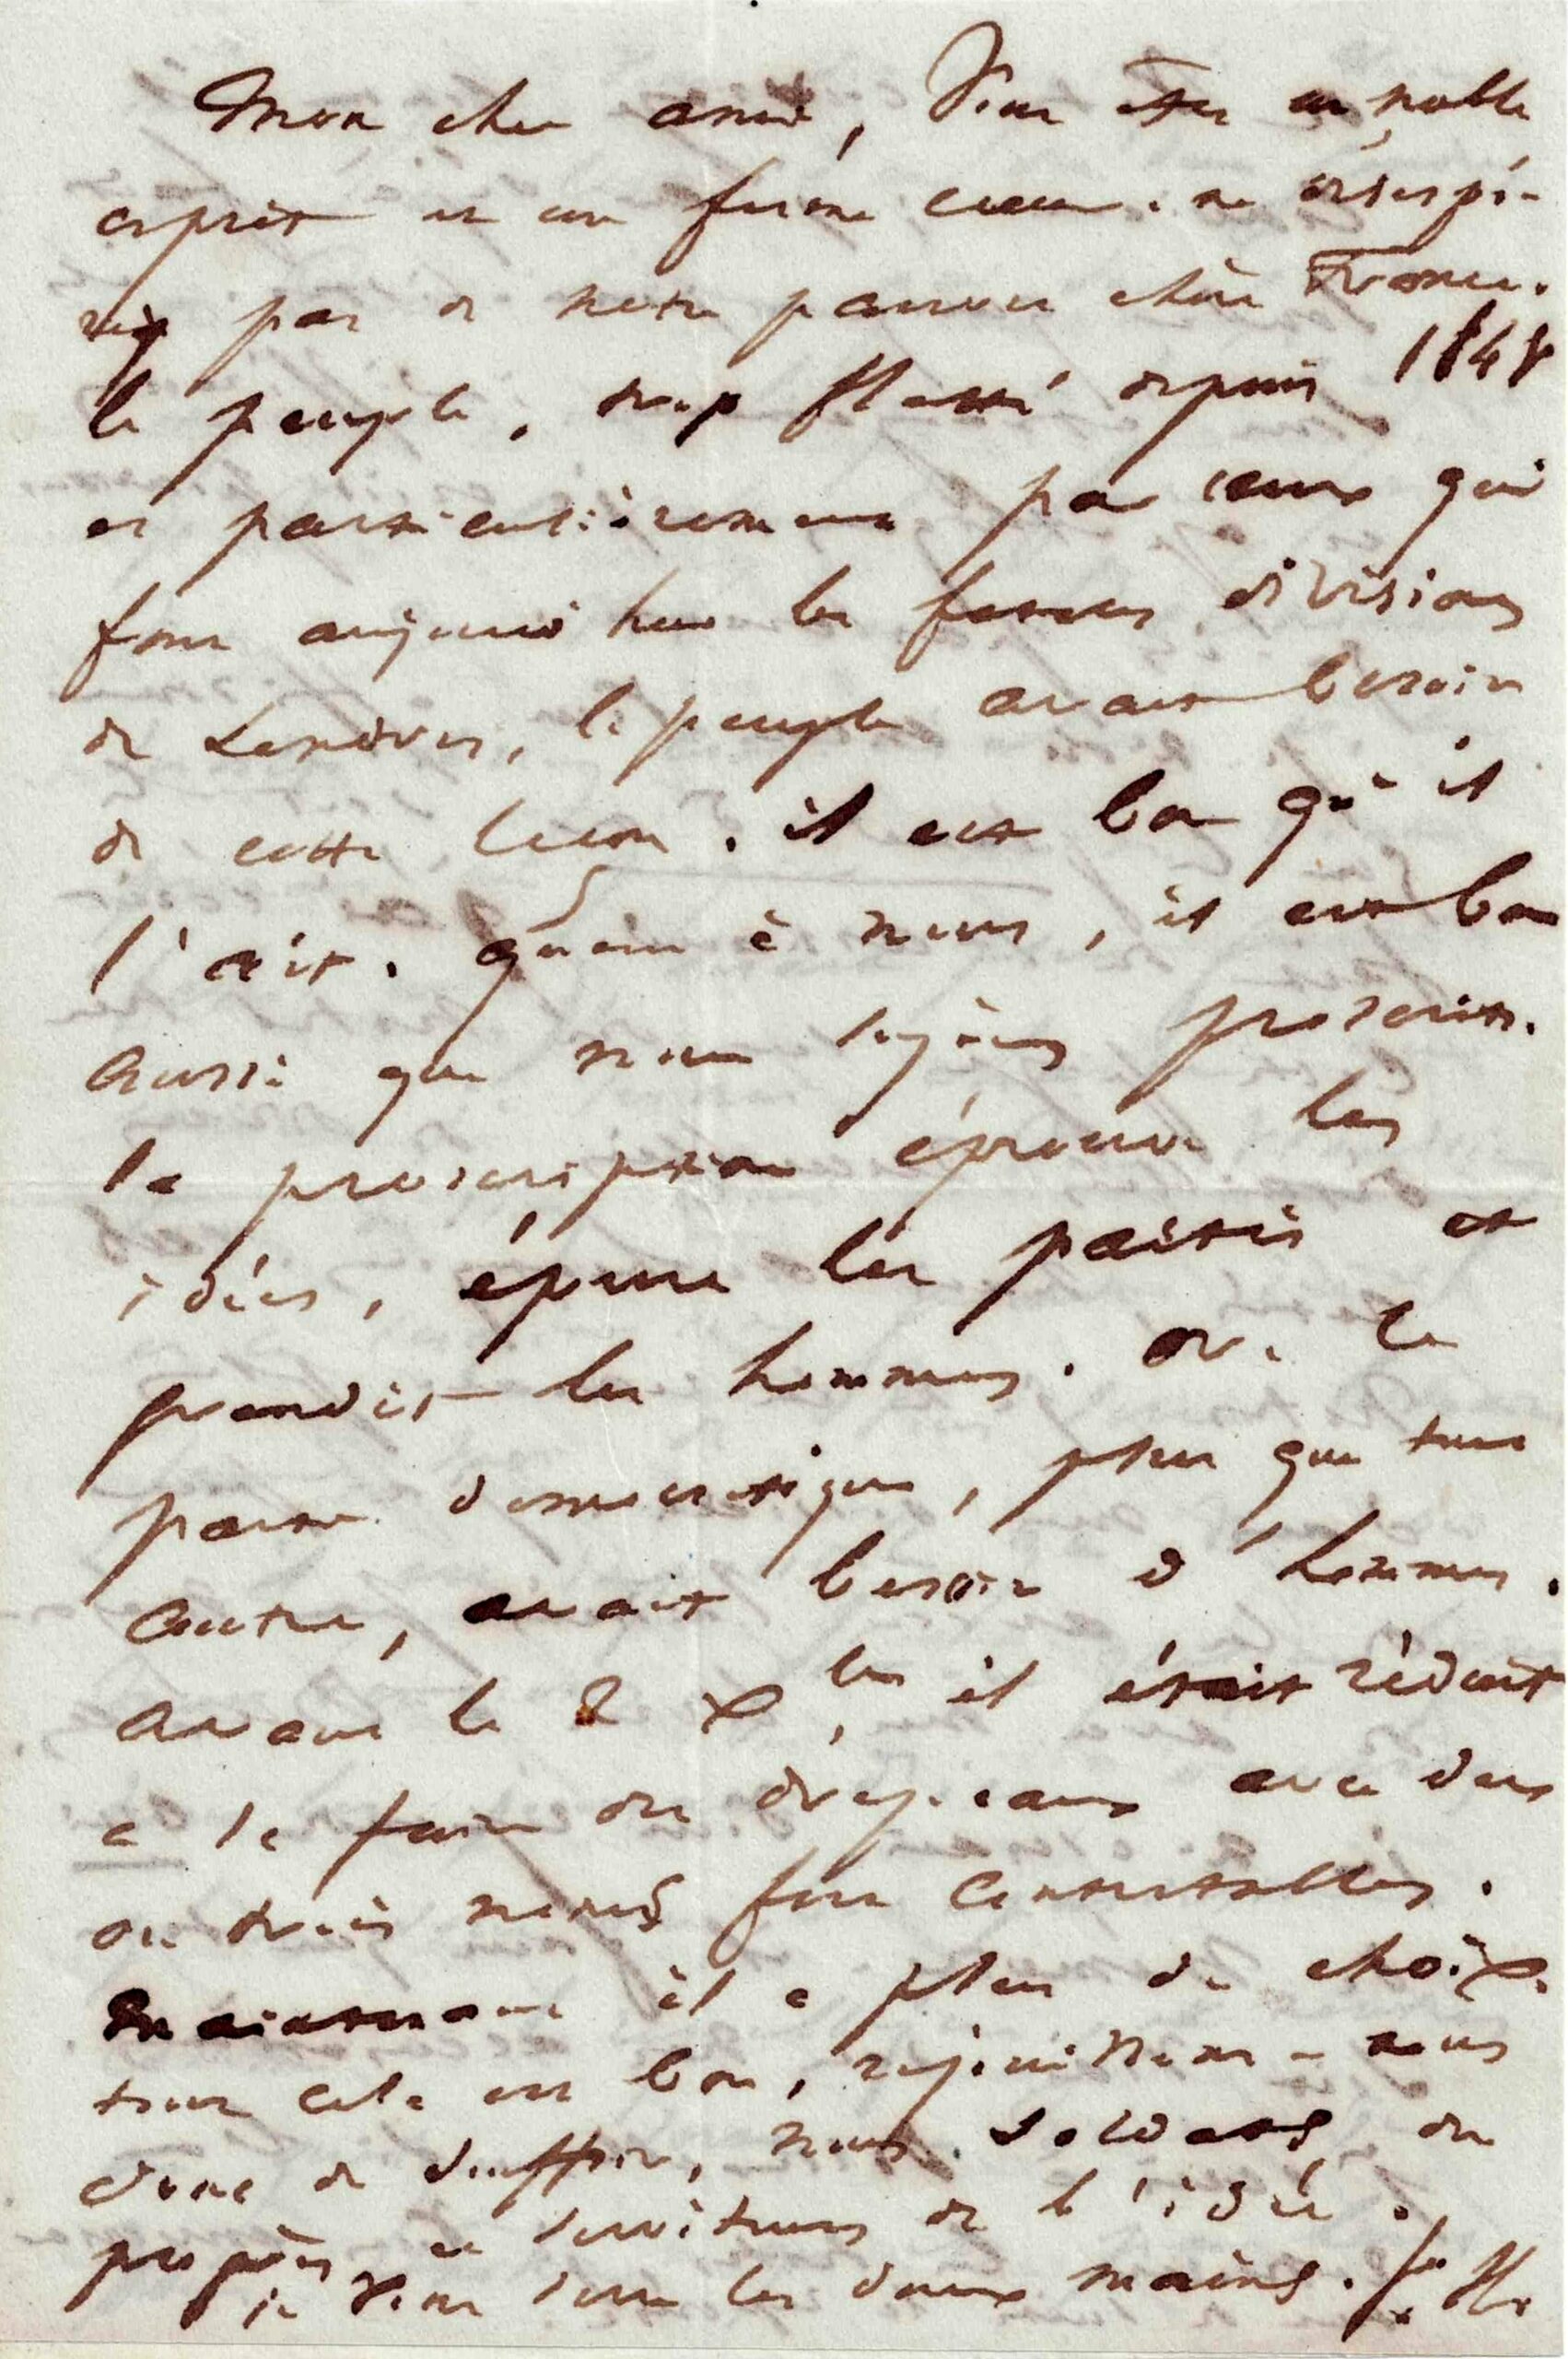 Mon cher ami, Vous êtes un noble
esprit et un ferme cœur. ne désespé-
rez pas de notre pauvre chère France.
le peuple, trop flatté depuis 1848
et particulièrement par ceux qui
font aujourd'hui les fausses divisions
de Londres, le peuple avait besoin
de cette leçon. il est bon qu'il
l'ait. quant à nous, il est bon
aussi que nous soyions proscrits.
la proscription éprouve les
idées, épure les partis et
grandit les hommes. or. le
parti démocratique, plus que tout
autre, avait besoin d'hommes.
avant le 2 Xbre il était réduit
à se faire des drapeaux avec deux
ou trois noms fort contestables.
Maintenant il a plus de choix.
tout cela est bon, réjouissons-nous
donc de souffrir, nous soldats du
progrès et serviteurs de l'idée.
je vous serre les deux mains.